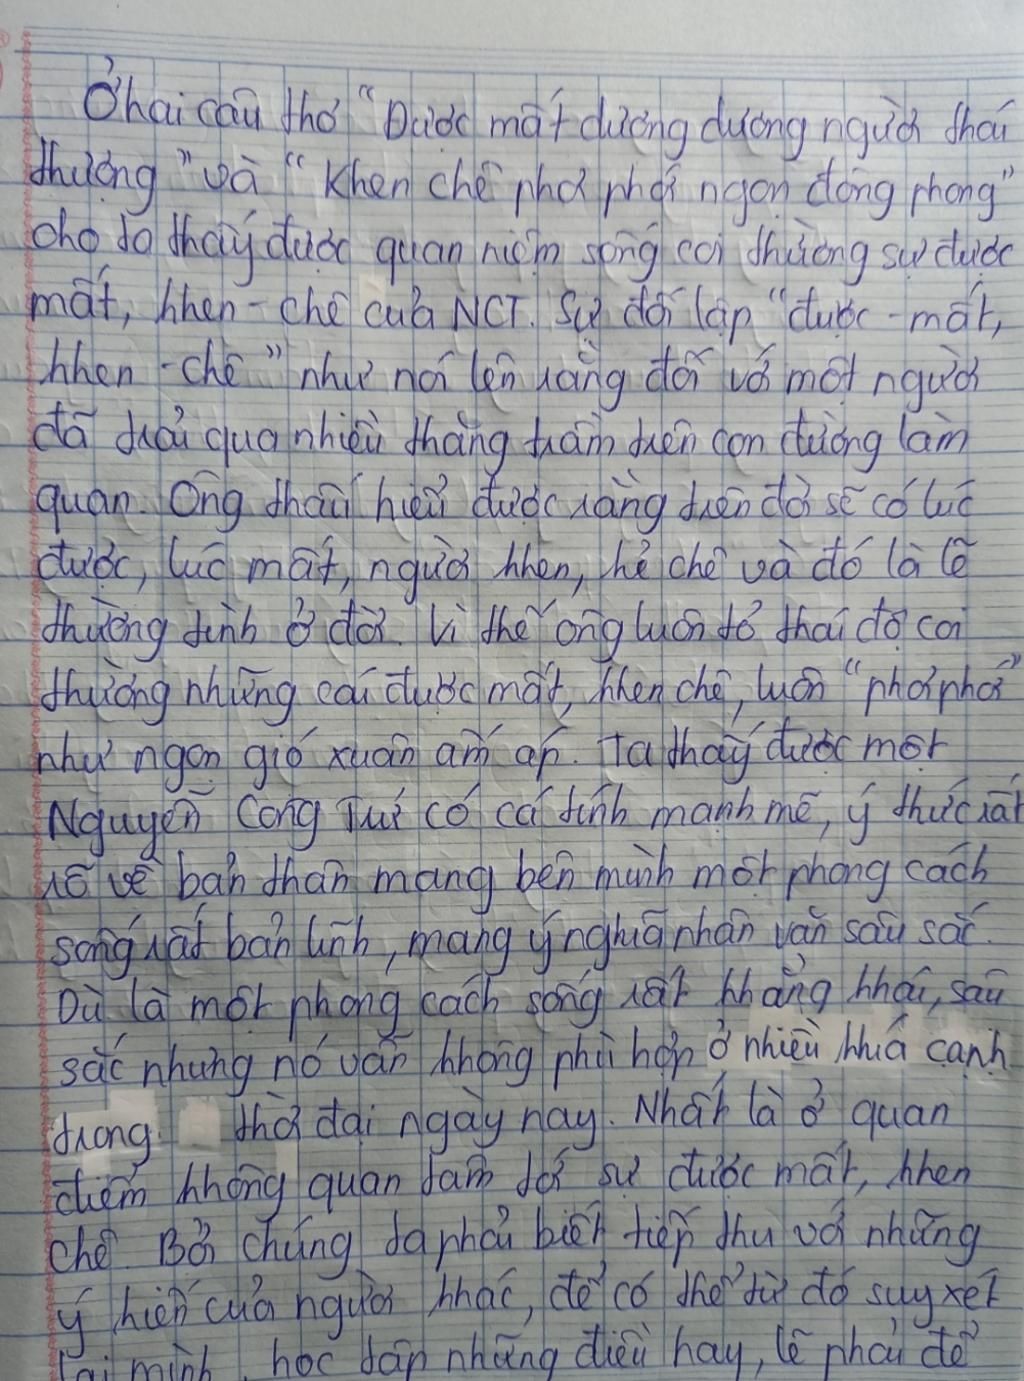 Ở hai câu thơ "Được mất dương dương người thái
thượng" và "Khen chê phơi phới ngọn đông phong"
cho ta thấy được quan niệm sống coi thường sự được
mất, khen - chê của NCT. Sự đối lập "được - mất,
khen - chê" như nói lên rằng đối với một người
đã trải qua nhiều thăng trầm trên con đường làm
quan. Ông thấu hiểu được rằng trên đời sẽ có lúc
được, lúc mất, người khen, kẻ chê và đó là lẽ
thường tình ở đời. Vì thế ông luôn tỏ thái độ coi
thường những cái được mất, khen chê, luôn "phơi phới"
như ngọn gió xuân ấm áp. Ta thấy được một
Nguyễn Công Trứ có cá tính mạnh mẽ, ý thức rất
rõ về bản thân mang bên mình một phong cách
sống rất bản lĩnh, mang ý nghĩa nhân văn sâu sắc.
Dù là một phong cách sống rất khẳng khái, sâu
sắc nhưng nó vẫn không phù hợp ở nhiều khía cạnh
trong thời đại ngày nay. Nhất là ở quan
điểm không quan tâm tới sự được mất, khen
chê. Bởi chúng ta phải biết tiếp thu với những
ý kiến của người khác, để có thể từ đó suy xét
lại mình, học tập những điều hay, lẽ phải để